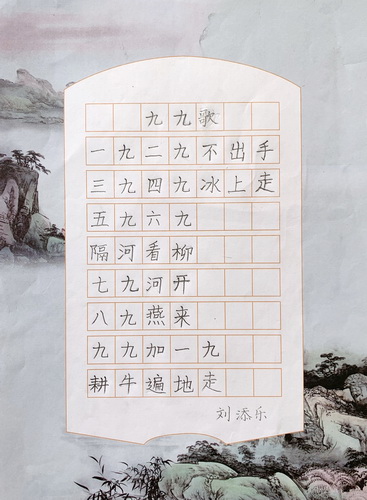 九九歌
一九二九不出手
三九四九冰上走
五九六九
隔河看柳
七九河开
八九燕来
九九加一九
耕牛遍地走
刘添乐